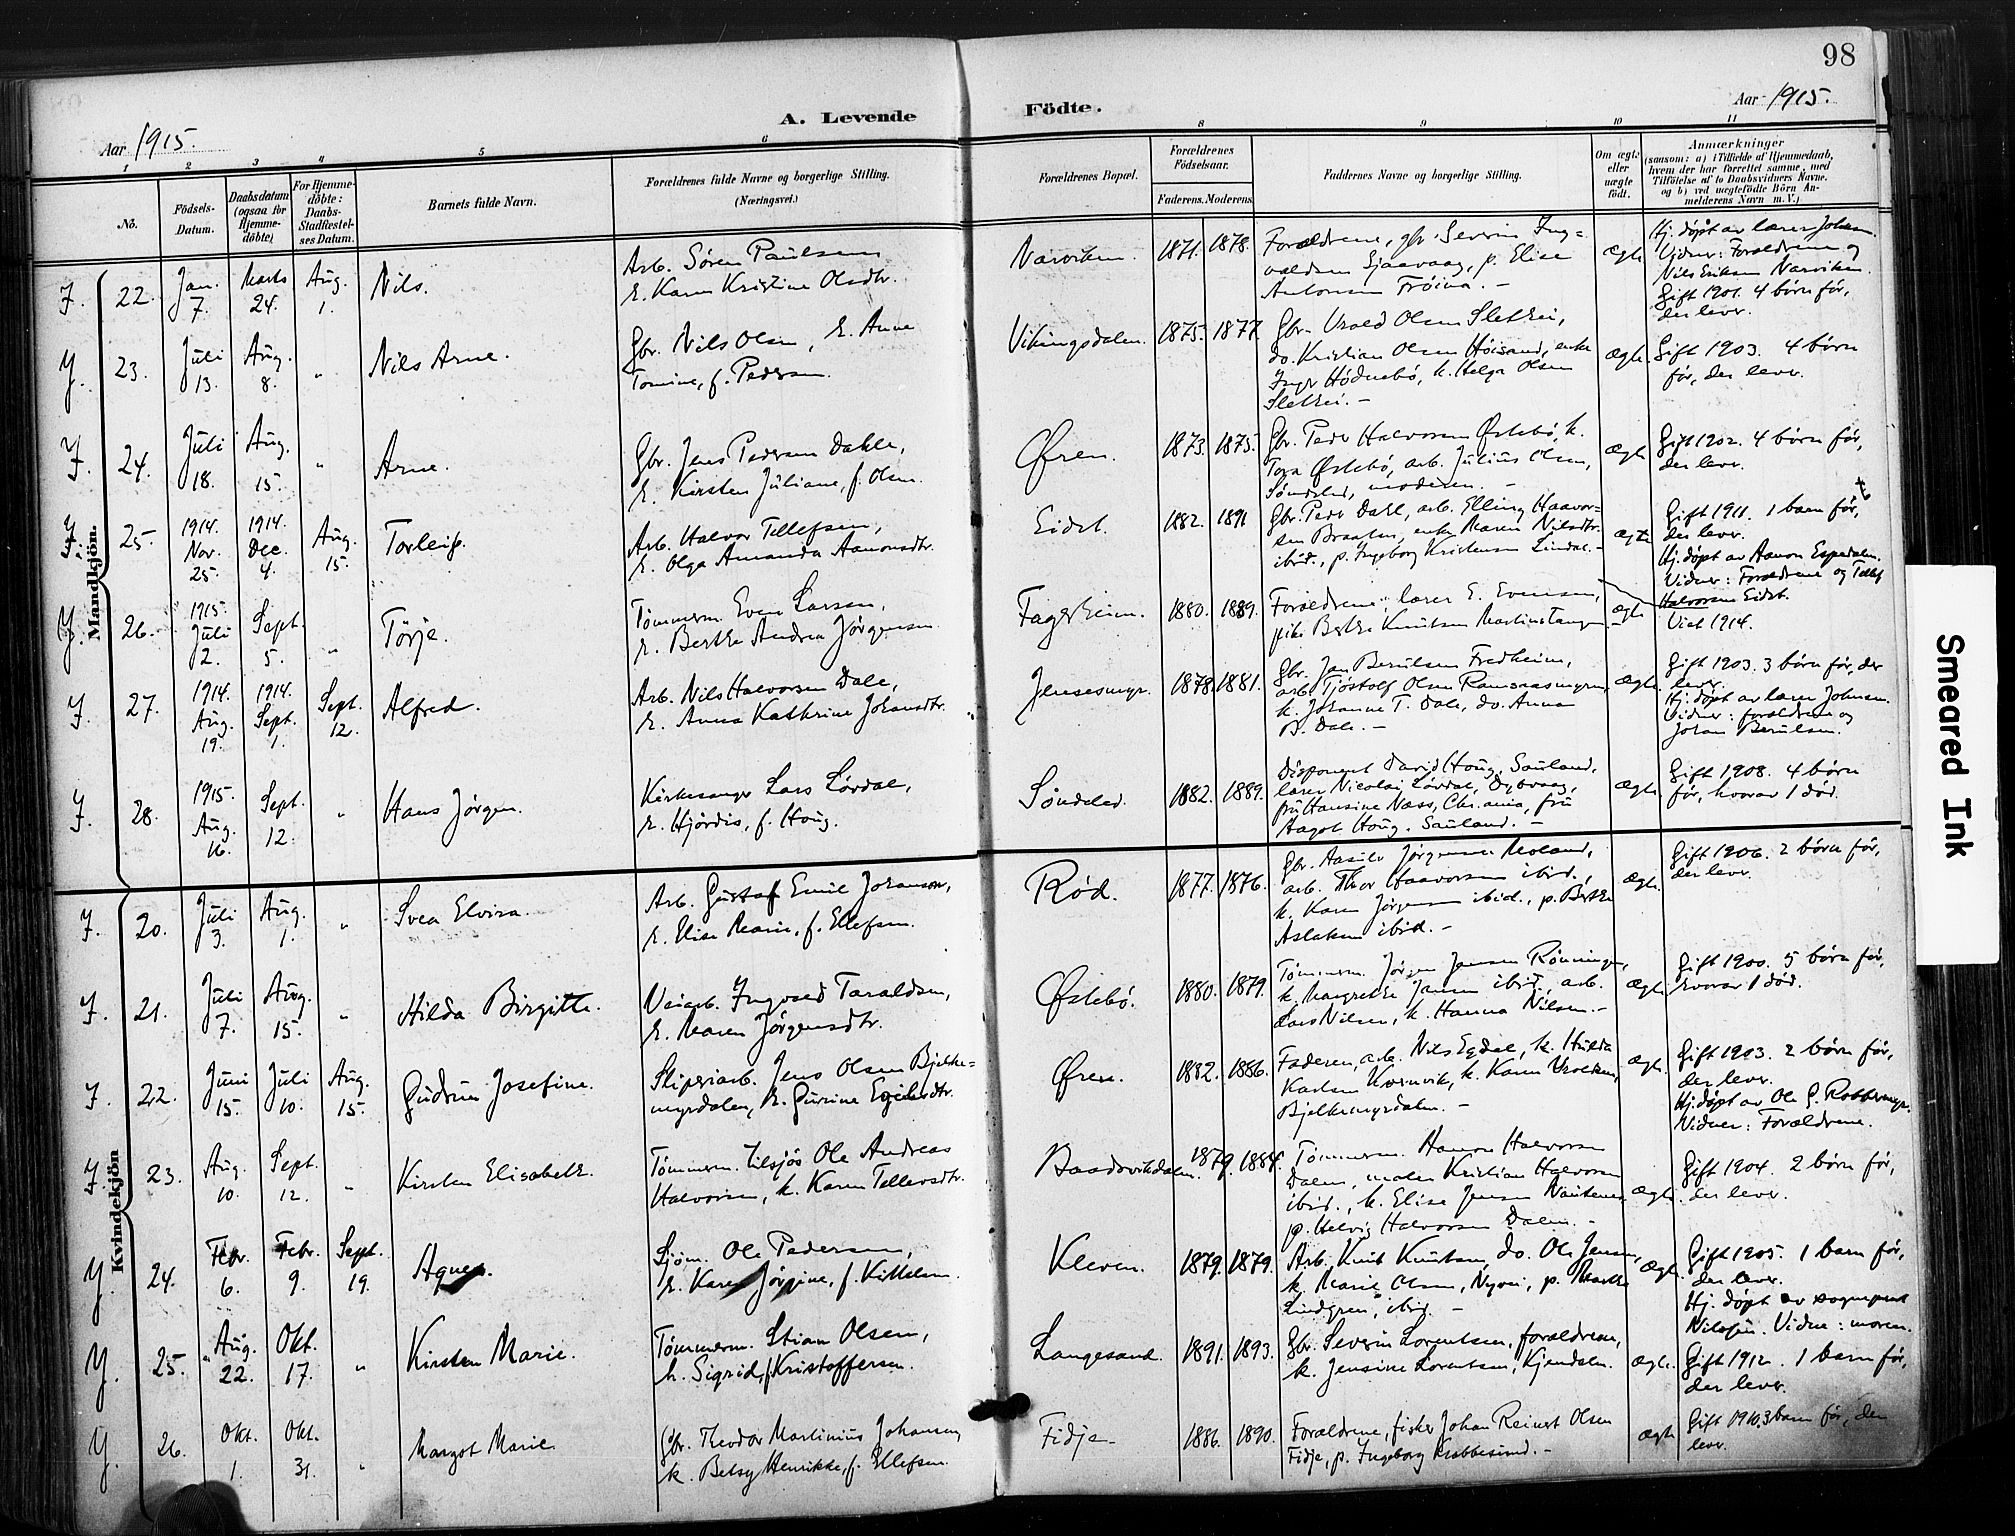 98
A. Levende Födte.
Aar 1915.
Aar 1915.
1 2 3 4 5 6 8 9 10 11
No.
Födsels-Datum.
Daabsdatum (ogsaa for Hjemme-döbte)
For Hjemme-döbte: Daabs-Stadfæstel-ses Datum.
Barnets fulde Navn.
Forældrenes fulde Navne og borgerlige Stilling.
(Næringsvei.)
Forældrenes Bopæl.
Forældrenes Födselsaar.
Faderens. Moderens.
Faddernes Navne og borgerlige Stilling.
Om ægte eller uægte födt.
Anmærkninger
(saasom: a) i Tilfælde af Hjemmedaab, hvem der har forrettet samme, med Tilföielse af to Daabsvidners Navne. og b) ved uægtefödte Börn Anmelderens Navn m. V.)
Mandkjön.
22. Jan. 7. Marts 24. Aug. 1. Nils.
Arb. Sören Paulsen
E. Karen Kristine Olsdtr.
Narviken. 1871. 1878.
Forældrene, gbr. Severin Ing-
valdsen Sjaavaag, p. Elise
Antonsen Tröina. –
ægte
Hj. døpt av lærer Johnsen
Vidner: Forældrene og
Nils Eriksen Narviken.
Gift 1901. 4 børn før,
der lever.
23. Juli 13. Aug. 8. " Nils Arne.
Gbr. Nils Olsen, E. Anne
Tomine, f. Pedersen.
Vikingsdalen. 1875. 1877.
Olsen Sletthei,
do. Kristian Olsen Höisand, enke
k. Helga Olsen
Sletthei. –
ægte.
Gift 1903. 4 børn
før, der lever.
24. Juli 18. Aug. 15. " Arne.
Gbr. Jens Pedersen Dahle,
E. Kirsten Juliane, f. Olsen.
Øfren. 1873. 1875.
Gbr. Peder Halvorsen Østebö, k.
Tora Østebö, arb. Julius Olsen,
Söndeled, moderen. –
ægte
Gift 1902. 4 børn før,
der lever.
25. 1914. Nov. 25. 1914. Dec. 4. Aug. 15. Torleif.
Arb. Halvor Tellefsen,
E. Olga Amanda Aanonsdtr.
Eidet. 1882. 1891
Gbr. Peder Dahl, arb. Elling Haavor-
sen Braaten, enke Maren Nilsdtr.
ibid., p. Ingeborg Kristensen Lindal. –
ægte
Gift 1911. 1 barn før,
der lever.
Hj. døpt av Aanon Espedalen.
Vidner: Forældrene og Tellef
Halvorsen Eidet.
26. 1915. Juli 2. Sept. 5. " Törje.
Tömmerm. Even Larsen,
E. Berthe Andrea Jörgensen
Fagerheim. 1880. 1889.
Forældrene, lærer E. Evensen,
pike Berthe Knutsen Martine Tangen
ægte
Viet 1914.
27. 1914. Aug. 19. 1914. Sept. 1. Sept. 12. Alfred.
Arb. Nils Halvorsen Dale,
E. Anna Kathrine Johansdtr.
Jensesmyr. 1878. 1881.
Gbr. Jan Berulsen Fredheim,
arb. Tjöstolf Olsen Ramsaasmyren,
k. Johanne T. Dale, do. Anna
B. Dale. –
ægte.
Gift 1903. 3 børn før, der
lever.
Hj. døpt av lærer Johnsen.
Vidner: forældrene og
Johan Berulsen.
28. 1915. Aug. 16. Sept. 12. " Hans Jørgen.
Kirkesanger Lars Lövdal,
E. Hjördis, f. Houg.
Söndeled. 1882. 1889.
Disponent David Houg, Sauland,
lærer Nicolai Lövdal, Dybvaag,
fru Hansine Næss, Chr.ania, fru
Aagot Houg, Sauland. –
ægte.
Gift 1908. 4 børn
før, hvorav 1 død.
Kvindekjön
20. Juli 3. Aug. 1. " Svea Elvira.
Arb. Gustaf Emil Johanson,
E. Elise Marie, f. Ellefsen.
Röd. 1877. 1876.
Jörgensen Moland,
arb. Thor Haavorsen ibid.,
k. Karen Jörgensen ibid., p. Berthe
Aslaksen ibid. –
ægte.
Gift 1906. 2 børn før,
der lever.
21. Juli 7. Aug. 15. " Hilda Birgitte.
Veiarb. Ingvald Taraldsen,
E. Maren Jörgensdtr.
Østebö. 1880. 1879.
Tömmerm. Jörgen Jensen Rönningen,
k. Margrethe Jensen ibid., arb.
Lars Nilsen, k. Hanna Nilsen. –
ægte.
Gift 1900. 5 børn før,
hvorav 1 død.
22. Juni 15. Juli 10. Aug. 15. Gudrun Josefine.
Sliperiarb. Jens Olsen Bjelke-
myrdalen, E. Gurine Egilsdtr.
Øfren. 1882. 1886.
Faderen, arb. Nils Egdal, k. Hulda
Karlsen Kornvik, k. Karen
Bjelkemyrdalen. –
ægte.
Gift 1903. 2 børn før,
der lever.
Hj. døpt av Ole G. Robbersmyr.
Vidner: Forældrene.
23. Aug. 10. Sept. 12. " Kirsten Elisabeth.
Tömmerm. tilsjös Ole Andreas
Halvorsen, k. Karen Tellevsdtr.
1879. 1884.
Tömmerm. Hanon Halvorsen
Dalen, maler Kristian Halvorsen
ibid., k. Elise Jensen
p. Helvig Halvorsen Dalen. –
ægte.
Gift 1904. 2 børn før,
der lever.
24. Febr. 6. Febr. 9. Sept. 19. Agnes.
Sjöm. Ole Pedersen,
E. Karen Jörgine, f. Kittelsen.
Kleven. 1879. 1879.
Arb. Knut Knutsen, do. Ole Jensen,
k. Marie Olsen, p. Marthe
Lindgren, ibid. –
ægte.
Gift 1905. 1 barn før,
der lever.
Hj. døpt av sogneprest
Nilssen. Vidne: moren.
25. Aug. 22. Okt. 17. " Kirsten Marie.
Tömmerm. Stian Olsen,
h. Sigrid, f. Kristoffersen.
Langesand. 1891. 1893.
Gbr. Severin Lorentsen, forældrene,
k. Jensine Lorentsen, Kjendalen.
ægte.
Gift 1912. 1 barn før,
der lever.
26. Okt. 1. Okt. 31. " Margot Marie.
Gbr. Theodor Martinius Johansen,
k. Betsy Henrikke, f. Ellefsen.
Fidje. 1886. 1890.
Forældrene, fisker Johan Reinert Olsen
Fidje, p. Ingeborg Krabbesund. –
ægte
Gift 1910, 3 barn før, der
lever.
Smeared Ink